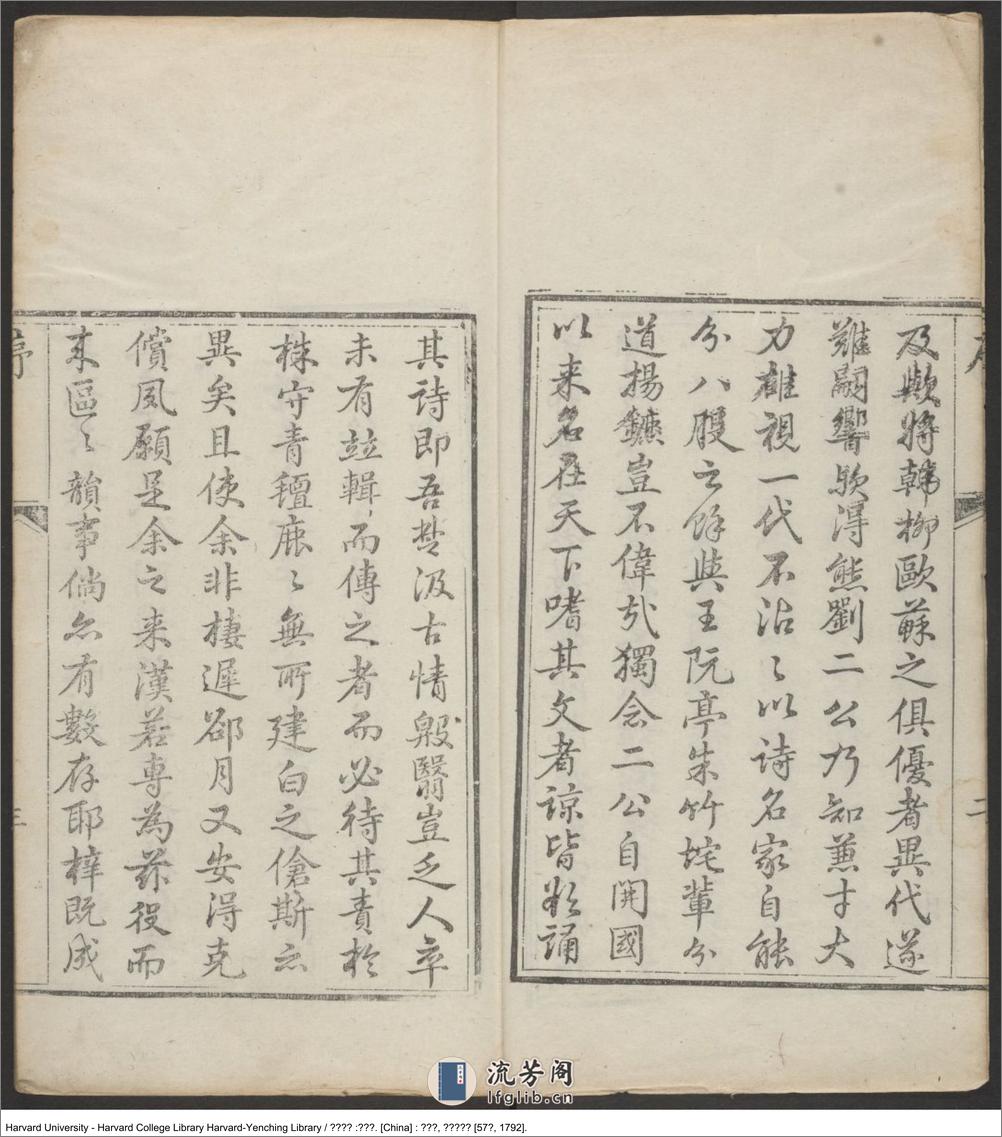 及歟將韓柳歐蘇之俱優者異代遂
難嗣響歟得熊劉二公乃知兼才大
力雄視一代不沾〻以詩名家自能
分八股之餘與王阮亭朱竹垞輩分
道揚鑣豈不偉哉獨念二公自開國
以来名在天下嗜其文者諒皆欲誦
其詩即吾楚汲古情殷醫豈乏人卒
未有並輯而傳之者而必待其責於
株守青氊鹿〻無所建白之傖斯亦
異矣且使余非棲遲郤月又安得克
償夙願是余之来漢若專為茲役而
来區〻韻事倘亦有數存耶梓既成
序
二
三
流芳阁
lfglib.cn
Harvard University - Harvard College Library Harvard-Yenching Library / ???? :???. [China] : ???, ????? [57?, 1792].